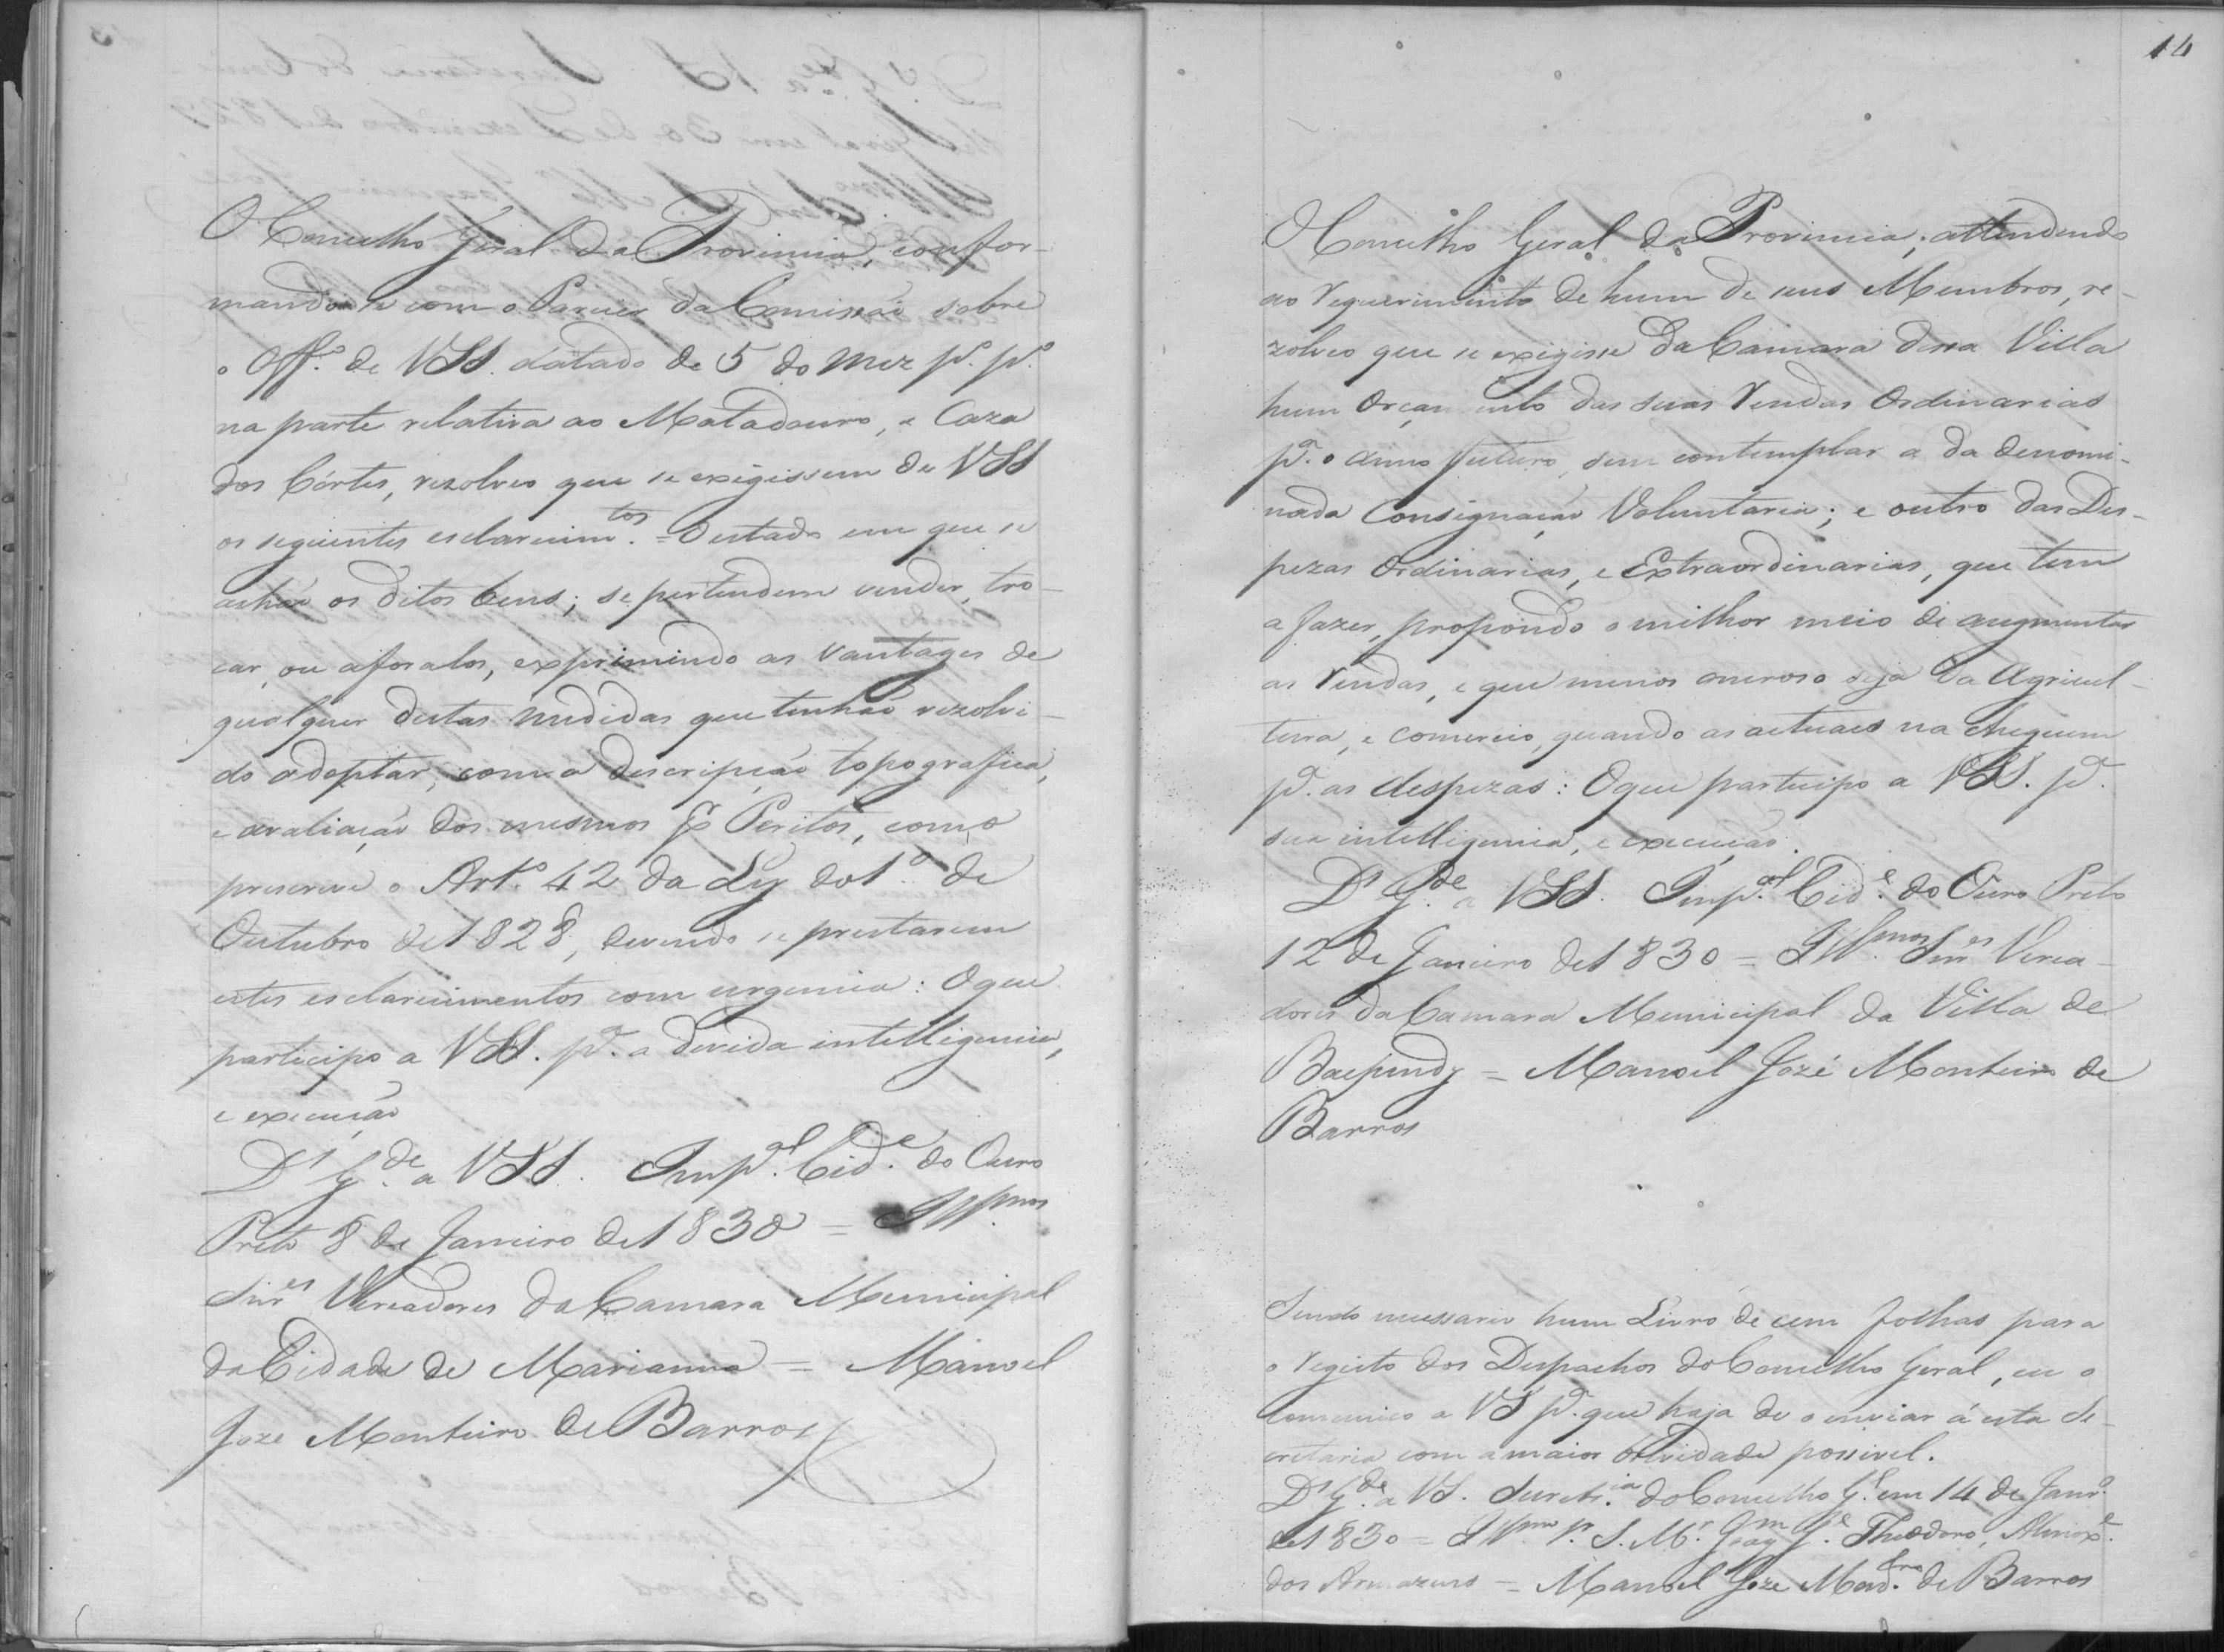 O Concelho Geral da Provincia, confor-
mandose com o Parecer da Comissaõ sobre
o Off.º de VSS. datado de 5 do mez p.º p.º
na parte relativa ao Matadouro, e Caza
dos Córtes, rezolveo que se exigissem de VSS
os seguintes esclarecim.tos = O estado em que se
achaõ os ditos bens; se pertendem vender, tro-
car, ou aforalos, exprimindo as vantages de
qualquer destas medidas que tenhaõ rezolvi-
do adoptar, com a descripçaõ topografica,
e avaliaçaõ dos mesmos p Peritos, como
prescreve o Art.º 42 da Ley do 1.º de
Outubro de 1828, devendo se prestarem
estes esclarecimentos com urgencia: O que
participo a VSS. p.ª a devida intelligencia,
e execuçaõ
D.s G.de a VSS. Imp.al Cid.e do Ouro
Preto 8 de Janeiro de 1830 = Ill.mos
Snr.es Vereadores da Camara Municipal
da Cidade de Marianna = Manoel
Joze Monteiro de Barros
14
O Concelho Geral da Provincia, attendendo
ao requerimento de hum de seus Membros, re-
zolveo que se exigisse da Camara dessa Villa
hum Orçamento das suas Rendas Ordinarias
p.ª o anno futuro, sem contemplar a da denomi-
nada Consignaçaõ Voluntaria; e outro das Des-
pezas Ordinarias, e Extraordinarias, que tem
a fazer, propondo o milhor meio de augmentar
as Rendas, e que menos oneroso seja da Agricul-
tura, e comercio, quando as actuaes na cheguem
p.ª as despezas: O que participo a VSS. p.ª
sua intelligencia, e execuçaõ.
D.s G.de a VSS. Imp.al Cid.e do Ouro Preto
12 de Janeiro de 1830 = Ill.mos Snr.es Verea-
dores da Camara Municipal da Villa de
Baependy = Manoel Jozé Monteiro de
Barros
Sendo necessario hum Livro de cem folhas para
o registo dos Despachos do Concelho Geral, eu o
comunico a VS p.ª que haja de o enviar á esta Se-
cretaria com a maior brevidade possivel.
D.s G.de a VS. Secretr.ia do Concelho G.l em 14 de Janr.º
de 1830 = Ill.mo Sr. S. M.r Joaq.m J.e Theodoro, Almox.e
dos Armazens = Manoel Joze Mont.ro de Barros